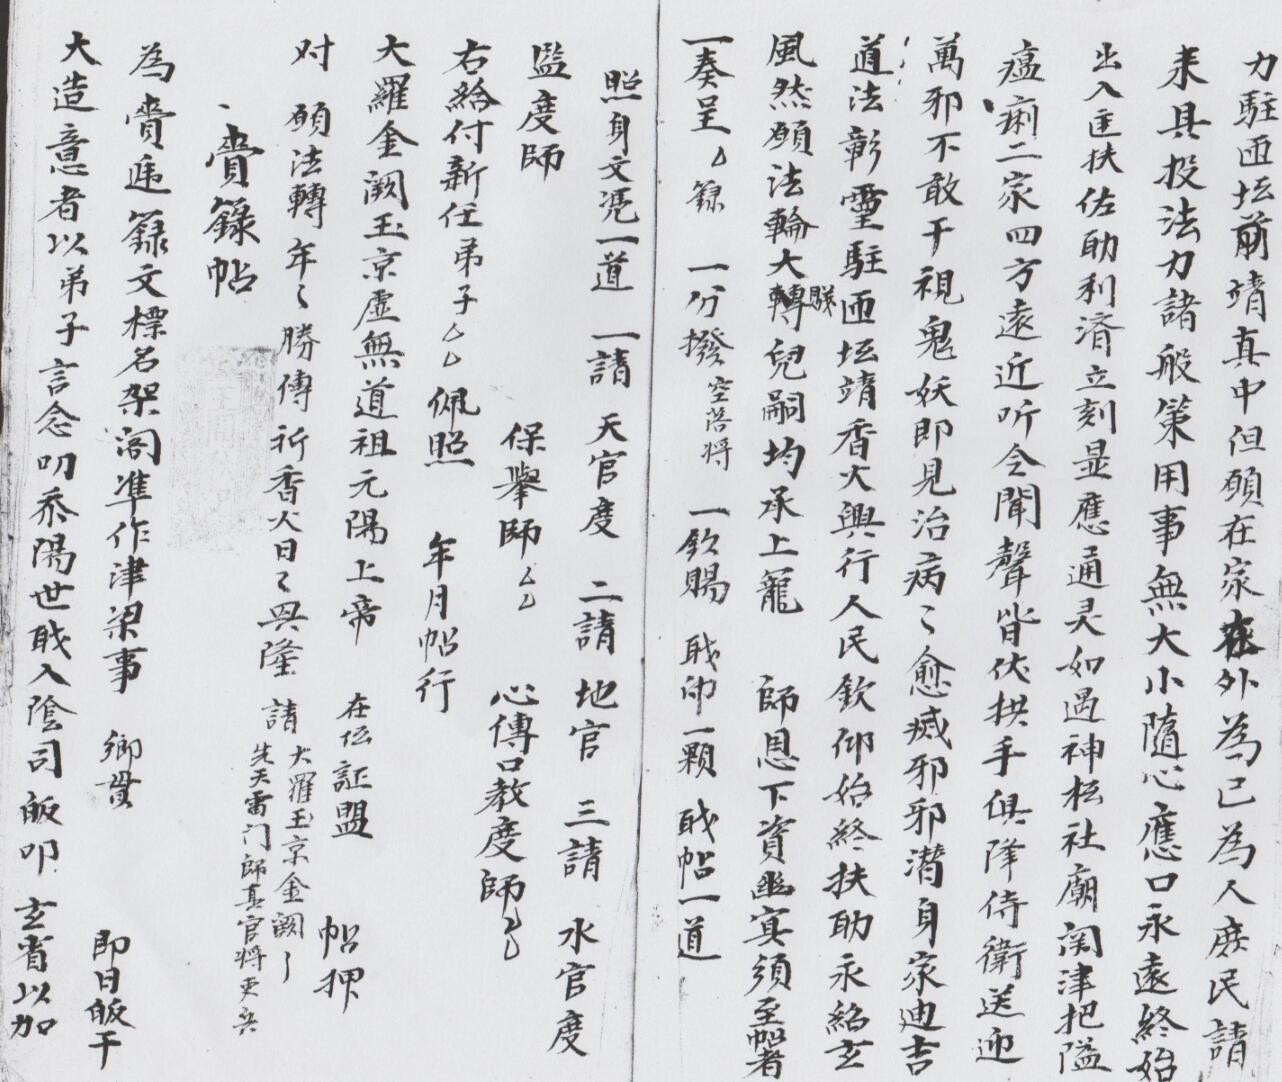 力駐匝坛前靖真中但願在家在外為已為人庶民請
来具投法力諸般策用事無大小隨心應口永遠終始
出入匡扶佐助利済立刻显應通灵如遇神枟社廟関津把隘
瘟痢二家四方遠近听令聞聲皆伏拱手俱降侍衛送迎
萬邪不敢干視鬼妖即見治病〻愈滅邪邪潜身家迪吉
道法彰靈駐匝坛靖香火興行人民欽仰始終扶助永紹玄
風然願法輪大轉兒嗣均承上寵 師恩下資幽冥須至帖者
一奏呈厶籙 一分撥 空落将 一欽賜 戝印一顆 戝帖一道
照身文凭一道 一請 天官度 二請 地官 三請 水官度
監度師 保舉師厶厶 心傳口教度師厶厶
右給付新任弟子厶厶 佩照 年月帖行
大羅金阙玉京虛無道祖元陽上帝 在伝証盟 帖押
对 願法轉年〻勝傳祈香火日〻興隆 請 大羅玉京金阙〻
先天雷门師真官将吏兵
賫籙帖
為賫進籙文標名架阁準作津梁事 鄉貫 即日皈干
大造意者以弟子言念叨忝陽世戝入陰司 皈叩 玄省以加